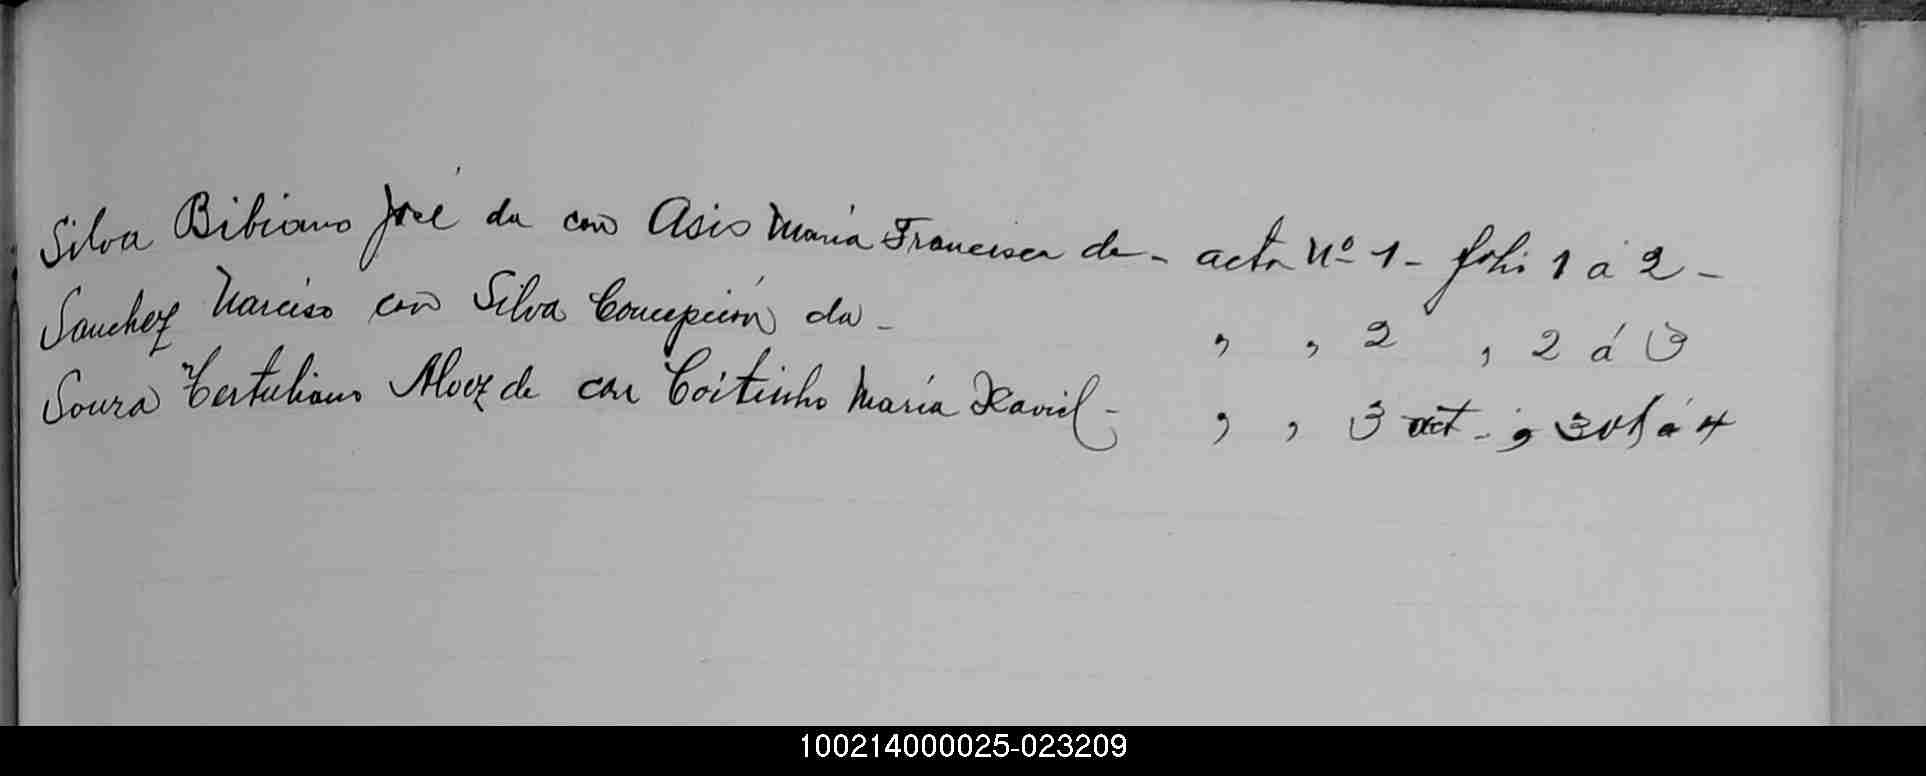 Silva Bibiano José da con Asis María Francisca de - acta Nº 1 - folio 1 á 2 -
Sanchez Narciso con Silva Concepción da - " " 2 " 2 á 3
Souza Tertuliano Alvez de con Coitinho María Xaviel - " " 3 " 3 á 4
100214000025-023209